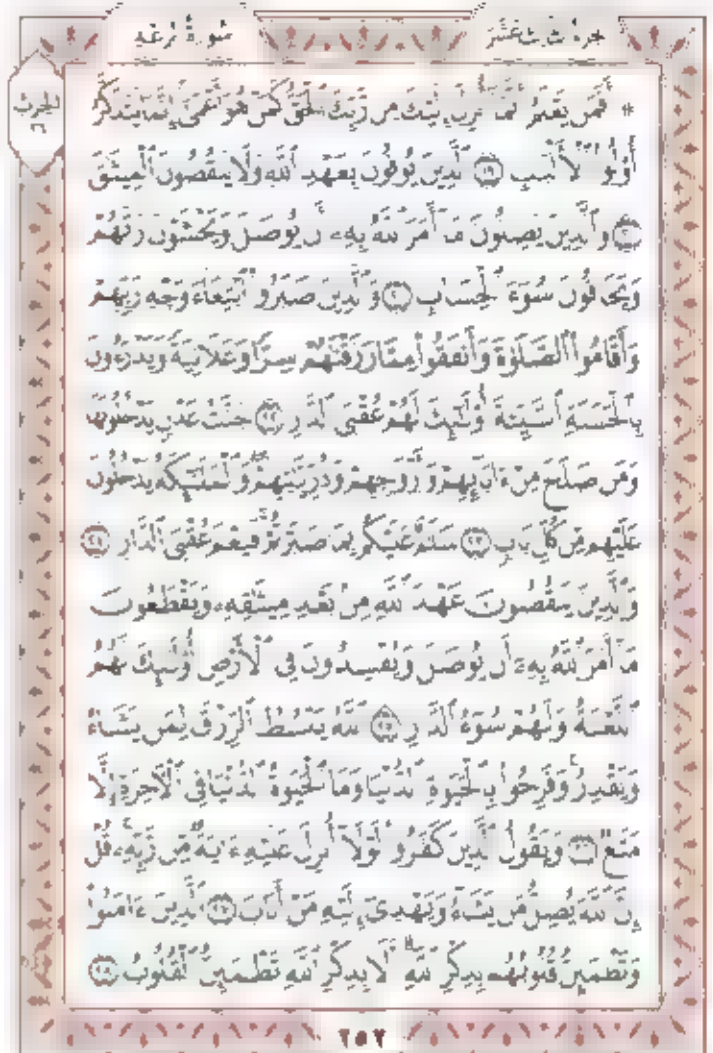 سُورَةُ الرَّعْدِ
الجُزْءُ الثَّالِثَ عَشَرَ
الحزب ٢٦
* أَفَمَن يَعْلَمُ أَنَّمَا أُنزِلَ إِلَيْكَ مِن رَّبِّكَ ٱلْحَقُّ كَمَنْ هُوَ أَعْمَىٰٓ إِنَّمَا يَتَذَكَّرُ
أُوْلُواْ ٱلْأَلْبَٰبِ ١٩ ٱلَّذِينَ يُوفُونَ بِعَهْدِ ٱللَّهِ وَلَا يَنقُضُونَ ٱلْمِيثَٰقَ
٢٠ وَٱلَّذِينَ يَصِلُونَ مَآ أَمَرَ ٱللَّهُ بِهِۦٓ أَن يُوصَلَ وَيَخْشَوْنَ رَبَّهُمْ
وَيَخَافُونَ سُوٓءَ ٱلْحِسَابِ ٢١ وَٱلَّذِينَ صَبَرُواْ ٱبْتِغَآءَ وَجْهِ رَبِّهِمْ
وَأَقَامُواْ ٱلصَّلَوٰةَ وَأَنفَقُواْ مِمَّا رَزَقْنَٰهُمْ سِرًّا وَعَلَانِيَةً وَيَدْرَءُونَ
بِٱلْحَسَنَةِ ٱلسَّيِّئَةَ أُوْلَٰٓئِكَ لَهُمْ عُقْبَى ٱلدَّارِ ٢٢ جَنَّٰتُ عَدْنٍ يَدْخُلُونَهَا
وَمَن صَلَحَ مِنْ ءَابَآئِهِمْ وَأَزْوَٰجِهِمْ وَذُرِّيَّٰتِهِمْۖ وَٱلْمَلَٰٓئِكَةُ يَدْخُلُونَ
عَلَيْهِم مِّن كُلِّ بَابٍ ٢٣ سَلَٰمٌ عَلَيْكُم بِمَا صَبَرْتُمْۚ فَنِعْمَ عُقْبَى ٱلدَّارِ ٢٤
وَٱلَّذِينَ يَنقُضُونَ عَهْدَ ٱللَّهِ مِنۢ بَعْدِ مِيثَٰقِهِۦ وَيَقْطَعُونَ
مَآ أَمَرَ ٱللَّهُ بِهِۦٓ أَن يُوصَلَ وَيُفْسِدُونَ فِى ٱلْأَرْضِ أُوْلَٰٓئِكَ لَهُمُ
ٱللَّعْنَةُ وَلَهُمْ سُوٓءُ ٱلدَّارِ ٢٥ ٱللَّهُ يَبْسُطُ ٱلرِّزْقَ لِمَن يَشَآءُ
وَيَقْدِرُۚ وَفَرِحُواْ بِٱلْحَيَوٰةِ ٱلدُّنْيَا وَمَا ٱلْحَيَوٰةُ ٱلدُّنْيَا فِى ٱلْأٓخِرَةِ إِلَّا
مَتَٰعٌ ٢٦ وَيَقُولُ ٱلَّذِينَ كَفَرُواْ لَوْلَآ أُنزِلَ عَلَيْهِ ءَايَةٌ مِّن رَّبِّهِۦۗ قُلْ
إِنَّ ٱللَّهَ يُضِلُّ مَن يَشَآءُ وَيَهْدِىٓ إِلَيْهِ مَنْ أَنَابَ ٢٧ ٱلَّذِينَ ءَامَنُواْ
وَتَطْمَئِنُّ قُلُوبُهُم بِذِكْرِ ٱللَّهِۗ أَلَا بِذِكْرِ ٱللَّهِ تَطْمَئِنُّ ٱلْقُلُوبُ ٢٨
٢٥٢